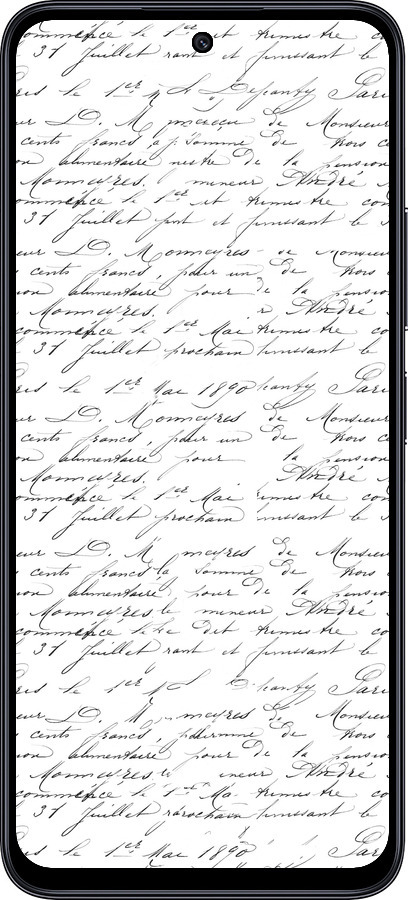 commencé le 1er et trimestre co
31 Juillet rant et finissant le
ris le 1er Pari
eur D. M de Monsieur
cents francs, somme de trois c
on alimentaire de la pension
Monmeyres. mineur André
commencé le 1er et trimestre co
31 Juillet et finissant le
eur D. Monmeyres de Monsieur
cents francs, pour un de trois
on alimentaire pour de la pension
Monmeyres. André
commencé le 1er Mai trimestre co
31 Juillet prochain finissant le
ris le 1er Mai 1890 Pari
eur D. Monmeyres de Monsieur
cents francs, pour un de trois c
on alimentaire pour la pension
Monmeyres. André
commencé le 1er Mai trimestre con
31 Juillet prochain finissant le
eur D. M meyres de Monsieur
cents francs la somme de trois
on alimentaire pour de la pension
Monmeyres le mineur André
commencé le dit trimestre co
31 Juillet rant et finissant le
ris le 1er Pari
eur D. M meyres de Monsieur
cents francs, de trois
on alimentaire pour de la pension
Monmeyres ineur André
commencé le 1er Ma trimestre co
31 Juillet finissant le
ris le 1er Mai 1890 Pari